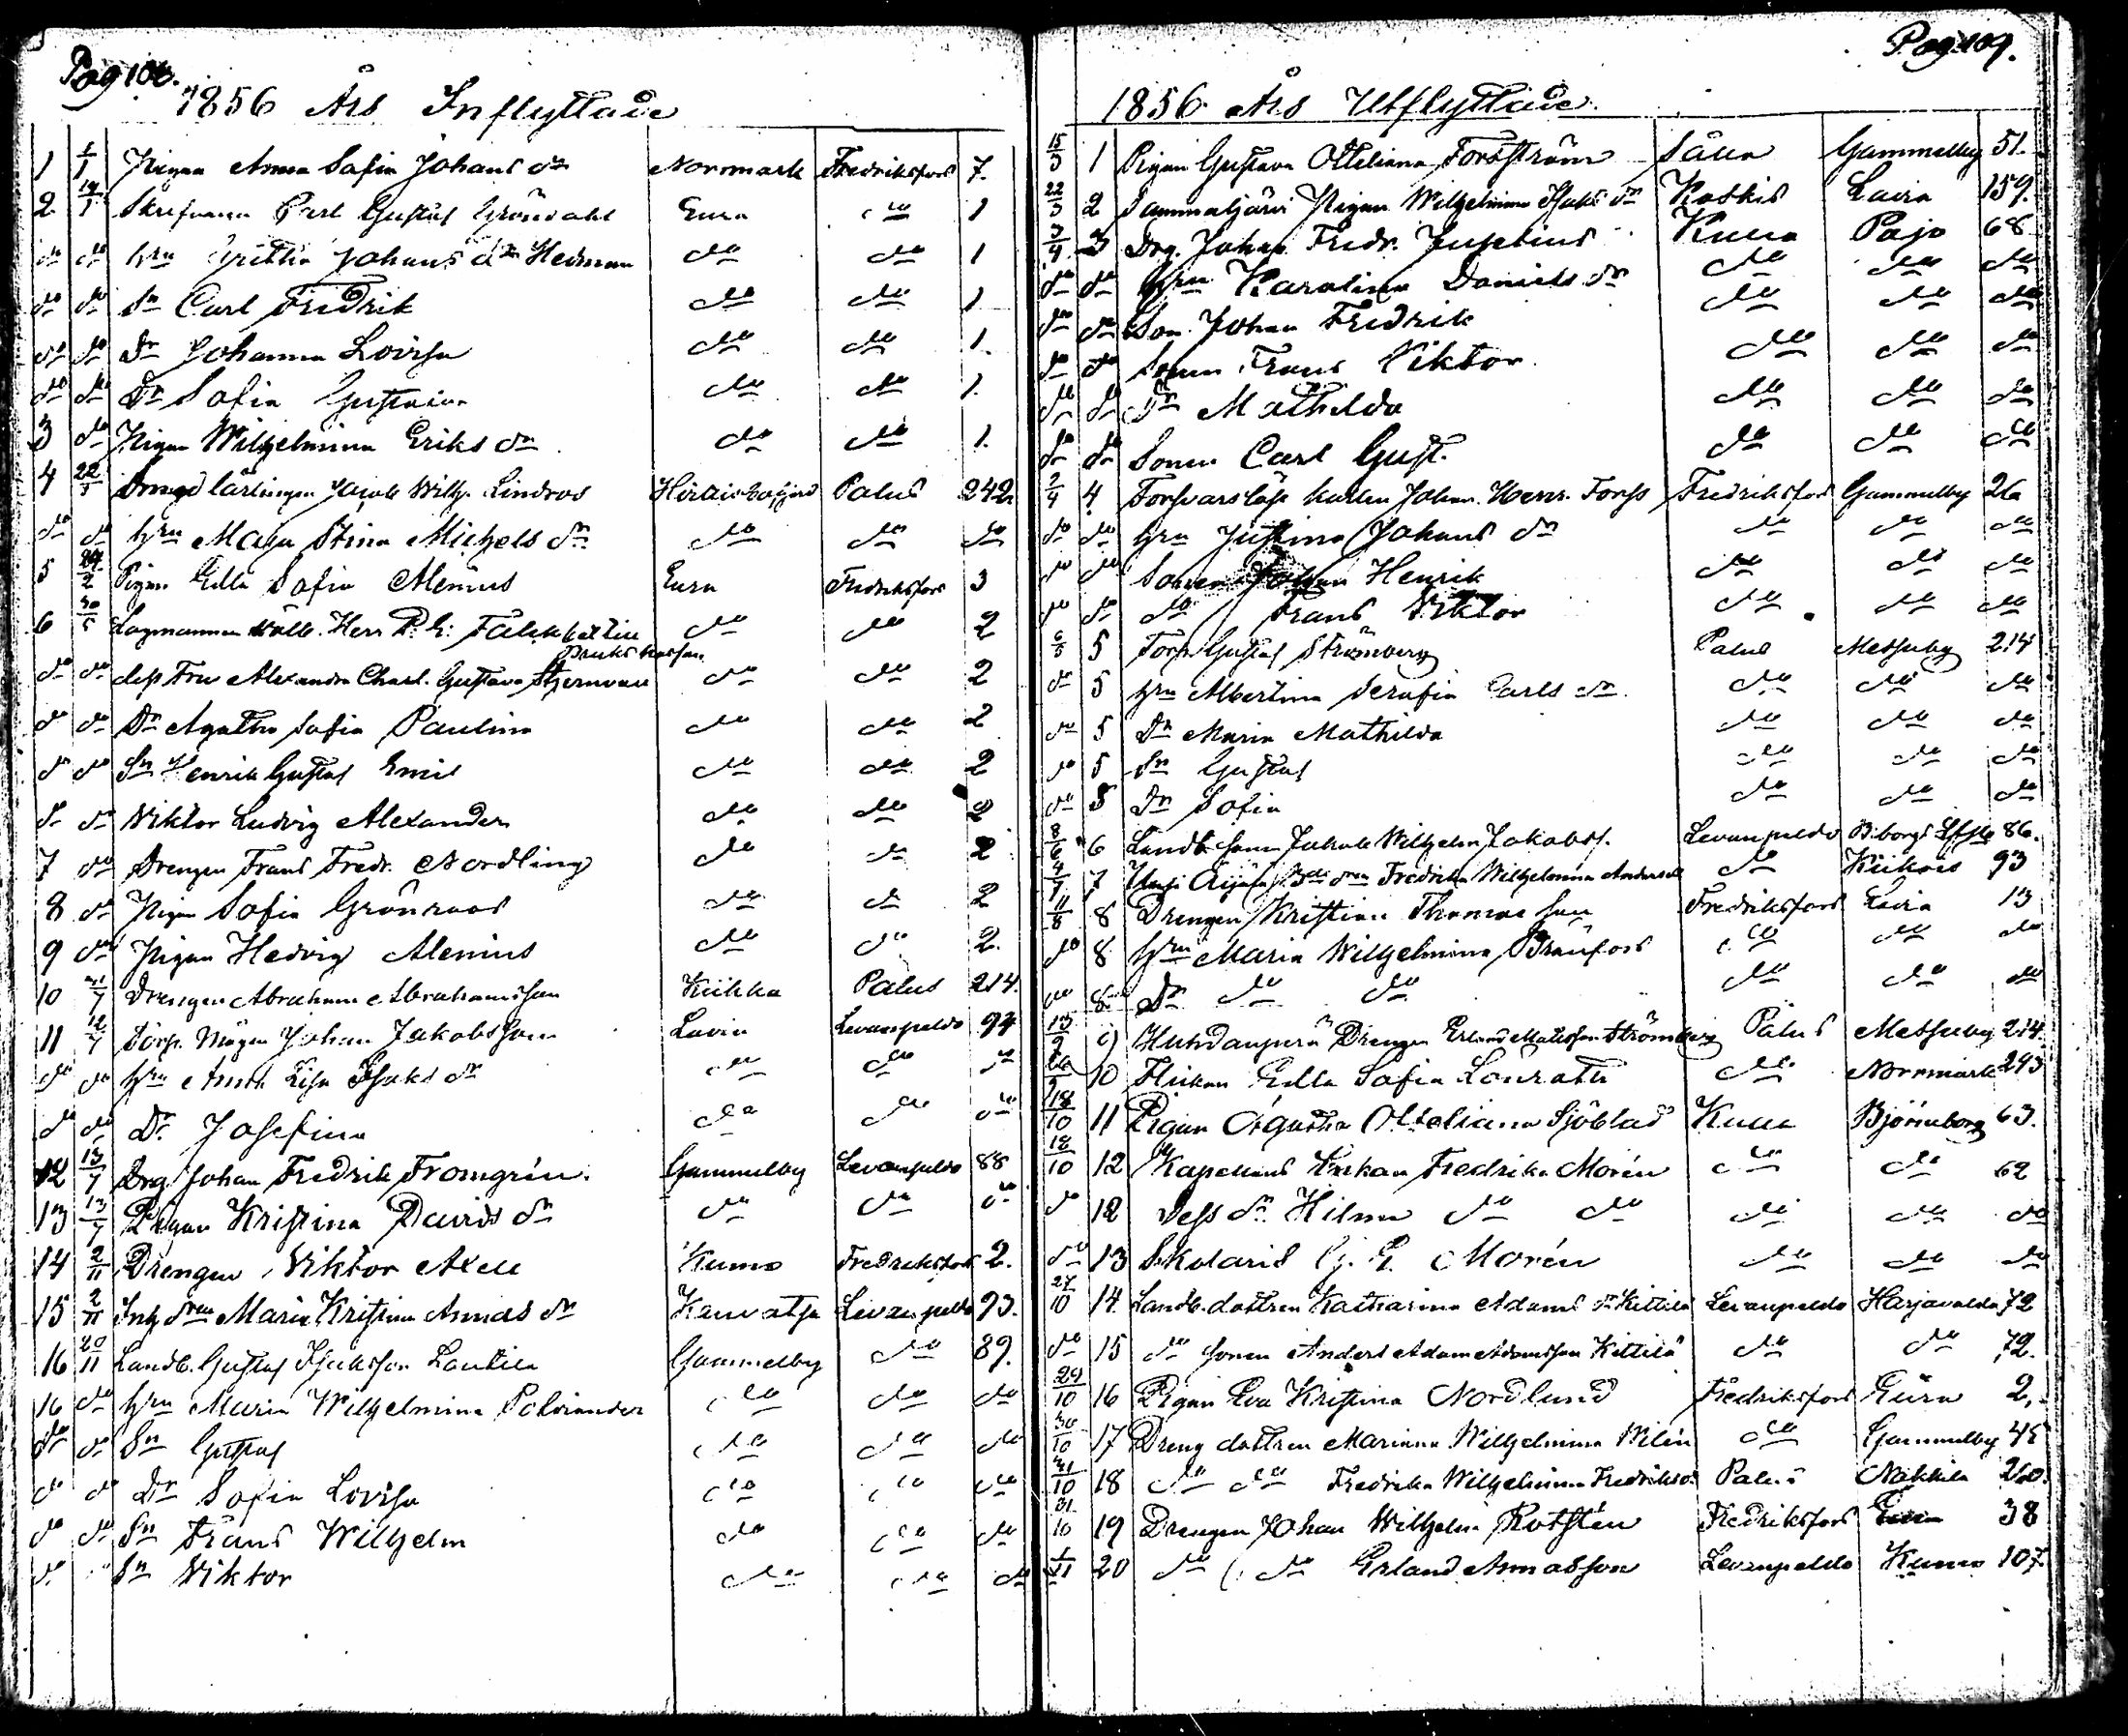 Pag 108.
1856 Års Inflyttade
1 1/1 Pigan Anna Safia Johans dr Norrmark Fredriksfors 7.
2. 19/1 Carl Gustaf Gröndahl Eura do 1
do do hru Johans dr Hedman do do 1
do do Sn Carl Fredrik do do 1
do do Dr Johanna Lovisa do do 1.
do do Dr Sofia Gustaiva do do 1.
3 do Pigan Wilhelmina Eriks dr do do 1.
4 22/1 lärlingen Jacob Wilh. Lindros Palus 242
do do hru Maja Stina Michels dr do do do
5 2 Pigan Ulla Sofia Alenius Eura Fredriksfors 3
6 30/5 Lagmannen Herr do do 2
Bruks
do do dess Fru Alexandra Charl. Gustava do do 2
do do Dr Agatha Sofia Paulina do do 2
do do Sn Henrik Gustaf Emil do do 2
do do Viktor Ludvig Alexander do do 2
7 do Drengen Frans Fredr. Nordling do do 2
8 do Pigan Sofia Grönroos do do 2
9 do Pigan Hedvig Alenius do do 2.
10 7 Drengen Abraham Abrahamsson Kiikka Palus 214.
11 12/7 Torp. Mågen Johan Jakobsson Lavia Levanpelto 94
do do hru Anna Lisa Isaks dr do do do
do do Dr Josefina do do do
12 13/7 Drg Johan Fredrik Fromgrén. Gammelby Levanpelto 88
13 13/7 Pigan Kristina Davids dr do do do
14 2/11 Drengen Viktor Axell Kumo Fredriksfors 2.
15 2/11 Inh dren Maria Kristina Annas dr Kauvatsa Levanpelto 93.
16 20/11 Landb. Gustaf Isaksson Lautila Gammelby do 89.
16 do hru Maria Wilhelmina Palviander do do do
do do Sn Gustaf do do do
do do Dr Sofia Lovisa do do do
do do Sn Frans Wilhelm do do do
do Sn Viktor do do do
Pag 109.
1856 Års Utflyttade.
15/3 1 Pigan Gustava Ottiliana Forsström Gammelby 51.
22/3 2 Sammaljärvi Pigan Wilhelmina Isaks dr Koskis Lavia 159.
3/4 3 Drg. Johan Fredr. Juselius Kuua Paja 68
do do hru Karolina Daniels dr do do do
do do Son Johan Fredrik do do do
do do Sonen Frans Viktor do do do
do do Dr Mathilda do do do
do do Sonen Carl Gust. do do do
2/4 4 Forsvarslöse karlen Johan Henr. Forss Fredriksfors Gammelby 26
do do hru Justina Johans dr do do do
do do Sonen Johan Henrik do do do
do do do Frans Viktor do do do
6/5 5 Torp. Gustaf Strömberg Palus Metsuby 214
do 5 hru Albertina Serafia Carls dr do do do
do 5 Dr Maria Mathilda do do do
do 5 Sn Gustaf do do do
do 5 Dr Sofia do do do
8/6 6 Landb. sonen Jakob Wilhelm Jakobss. Levanpelto 86.
4/7 7 Fredrika Wilhelmina Anders dr do Kiikois 93
11/8 8 Drengen Kristian Thomasson Fredriksfors Lavia 13
do 8 hru Maria Wilhelmina Bränfors do do do
do 8 Dr do do do do do
13/9 9 Huhdanperä Drengen Erland Matsson Strömberg Palus Metsuby 214.
26/9 10 Flickan Ulla Sofia Lönroth do Norrmark 293
18/10 11 Pigan Agatha Ottiliana Sjöblad Kuua Björneborg 63.
18/10 12 Kapellans Enkan Fredrika Morén do do 62
do 12 Dess dr Hilma do do do do do
do 13 Skolaris G. E. Morén do do do
27/10 14 Landb. dottren Katharina Adams dr Kittilä Levanpelto Harjavalda 72
do 15 do sonen Anders Adam Adamsson Kittilä do do 72.
29/10 16 Pigan Eva Kristina Nordlund Fredriksfors Eura 2,
30/10 17 Dreng dottren Mariana Wilhelmina Wilén do Gammelby 45
31/10 18 do do Fredrika Wilhelmina Fredriksdr Palus Nakkila 260.
31/10 19 Drengen Johan Wilhelm Rotstén Fredriksfors 38
1/11 20 do do Erland Annasson Levanpelto Kumo 107.